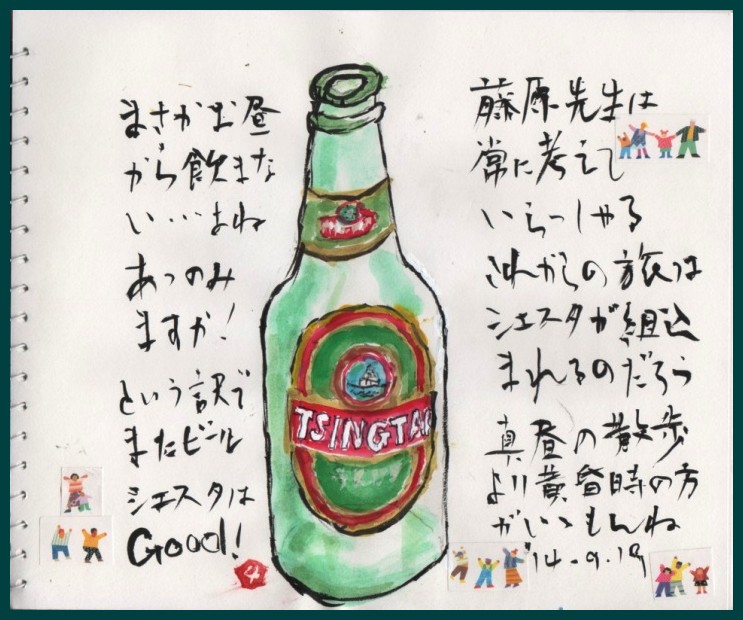 まさかお昼
から飲まな
い…よね
あっのみ
ますか!
という訳で
またビール
シエスタは
Good!
TSINGTAO
藤原先生は
常に考えて
いらっしゃる
これからの旅は
シエスタが組込
まれるのだろう
真昼の散歩
より黄昏時の方
がいいもんね
'14.9.19